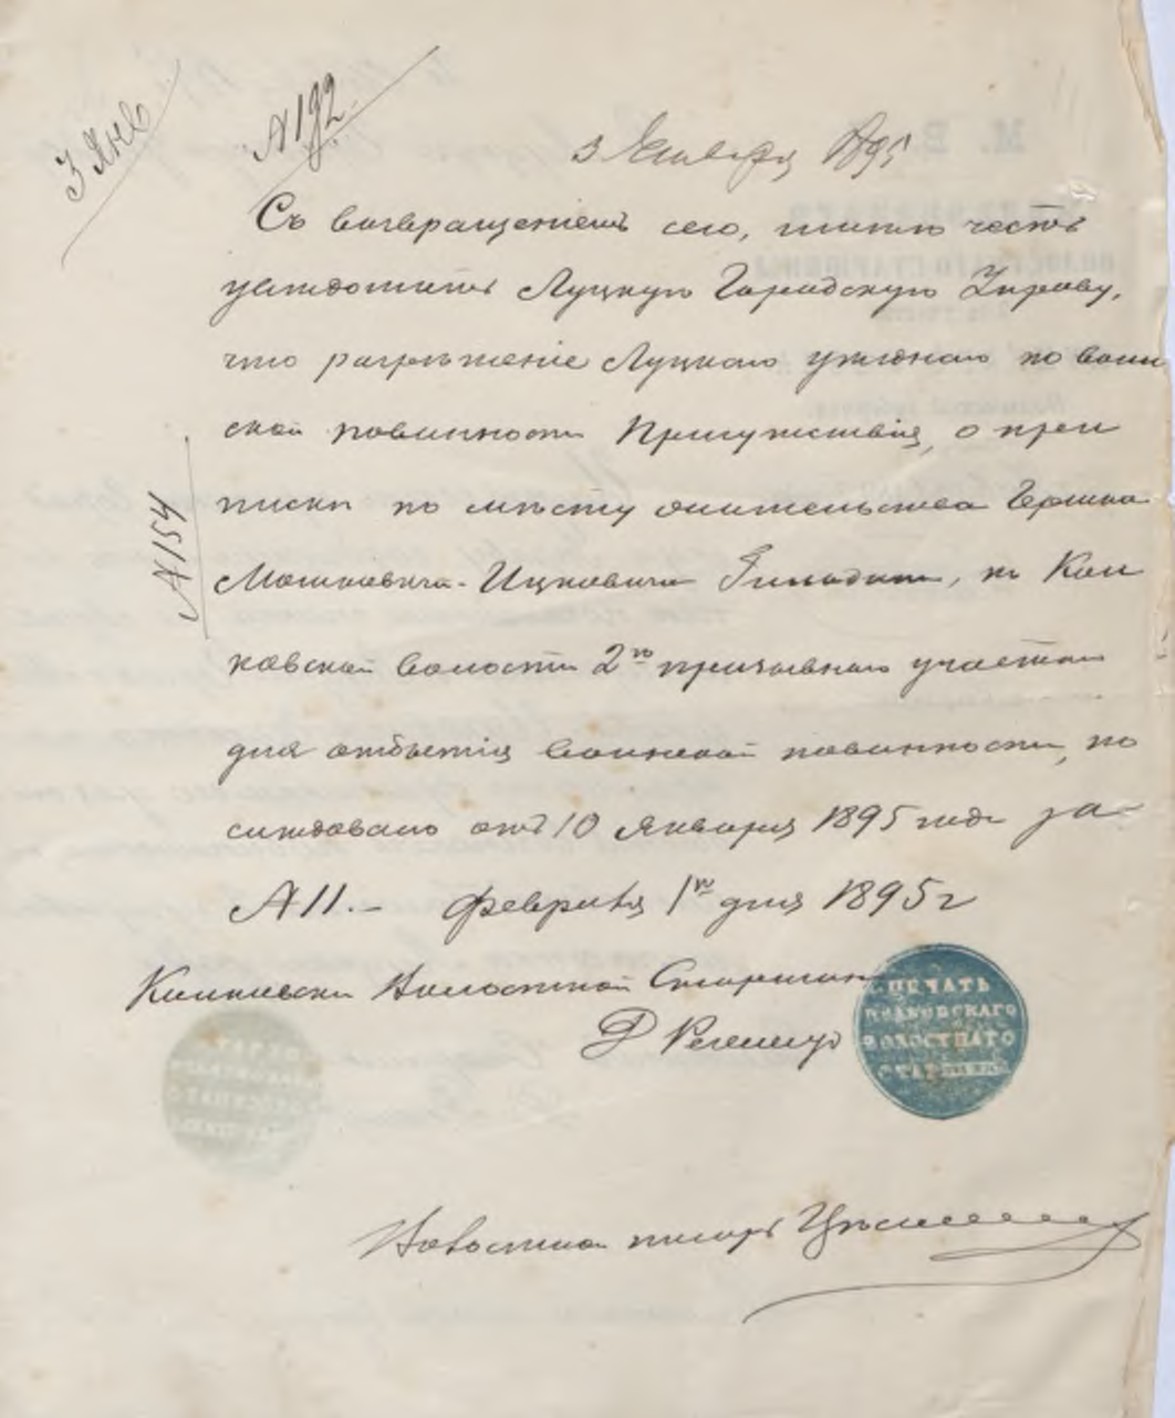 3 Янв
№ 192
3 Января 1895
Съ возвращеніемъ сего, имѣю честь
увѣдомить Луцкую Городскую Управу,
что разрѣшеніе Луцкаго уѣзднаго по воин
ской повинности Присутствія, о при
писки по мѣсту жительства Гершка
№ 154
Мошковича-Ицковича, къ Кол
ковской волости 2го призывнаго участка
для отбытія воинской повинности, по
слѣдовало отъ 10 Января 1895 года за
№ 11.- Февраля 1го дня 1895 г
Колковскій Волостной Старшина
ПЕЧАТЬ
КОЛКОВСКАГО
ВОЛОСТНАГО
СТАРШИНЫ
Волостной писарь